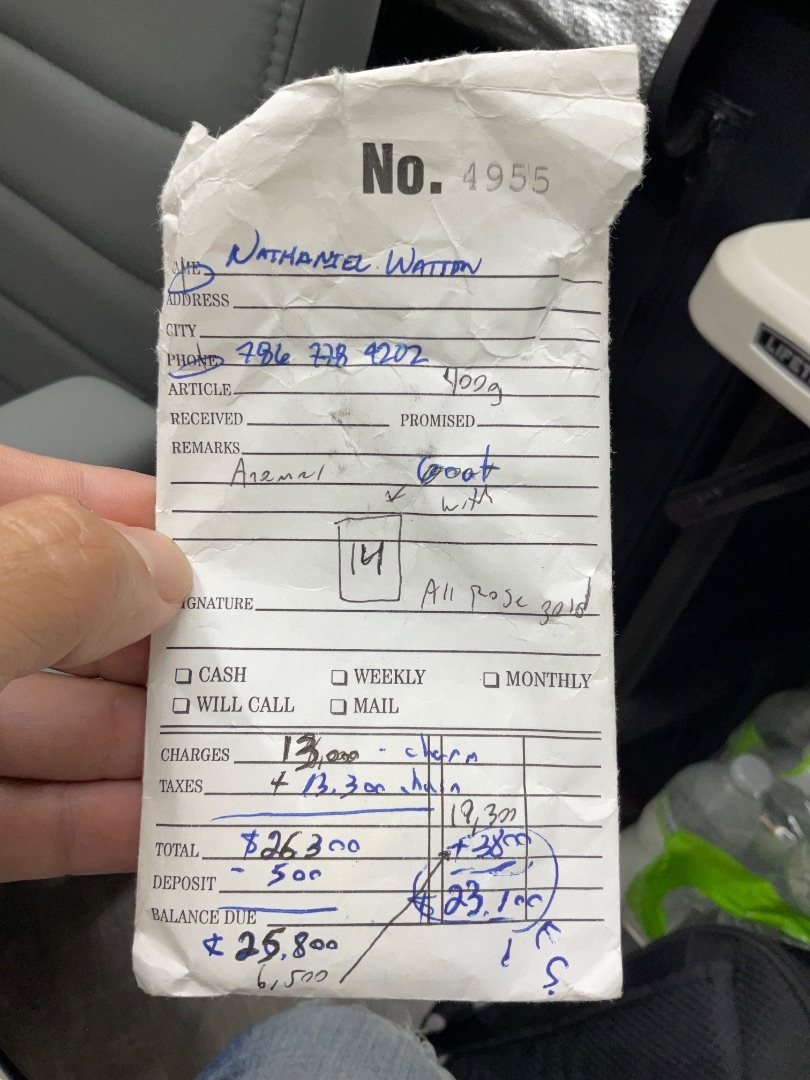 No. 4955
AME NATHANIEL WATTON
ADDRESS
CITY
PHONE 786 778 4202
ARTICLE 400g
RECEIVED PROMISED
REMARKS
Goat
with
14
All rose gold
IGNATURE
CASH WEEKLY MONTHLY
WILL CALL MAIL
CHARGES 13,000 - charm
TAXES + 13,300 chain
19,300
TOTAL $26300 + 3800
DEPOSIT - 500
$ 23,100
BALANCE DUE
$ 25,800
6,500
LIFET